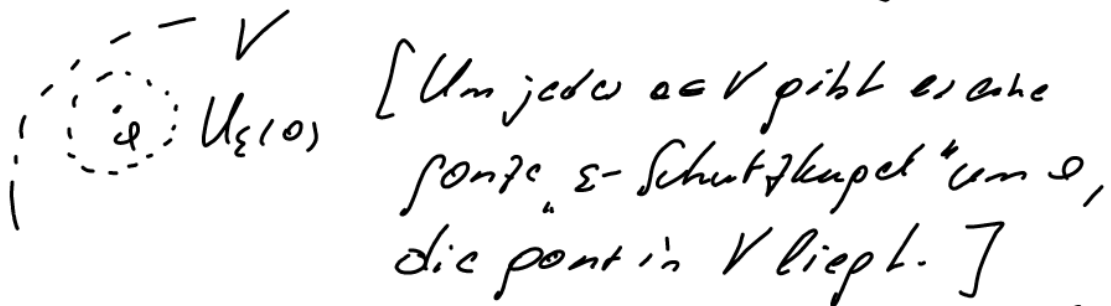 V
a U_ε(a)
[Um jedes a ∈ V gibt es eine
ganze „ε-Schutzkugel“ um a,
die ganz in V liegt.]